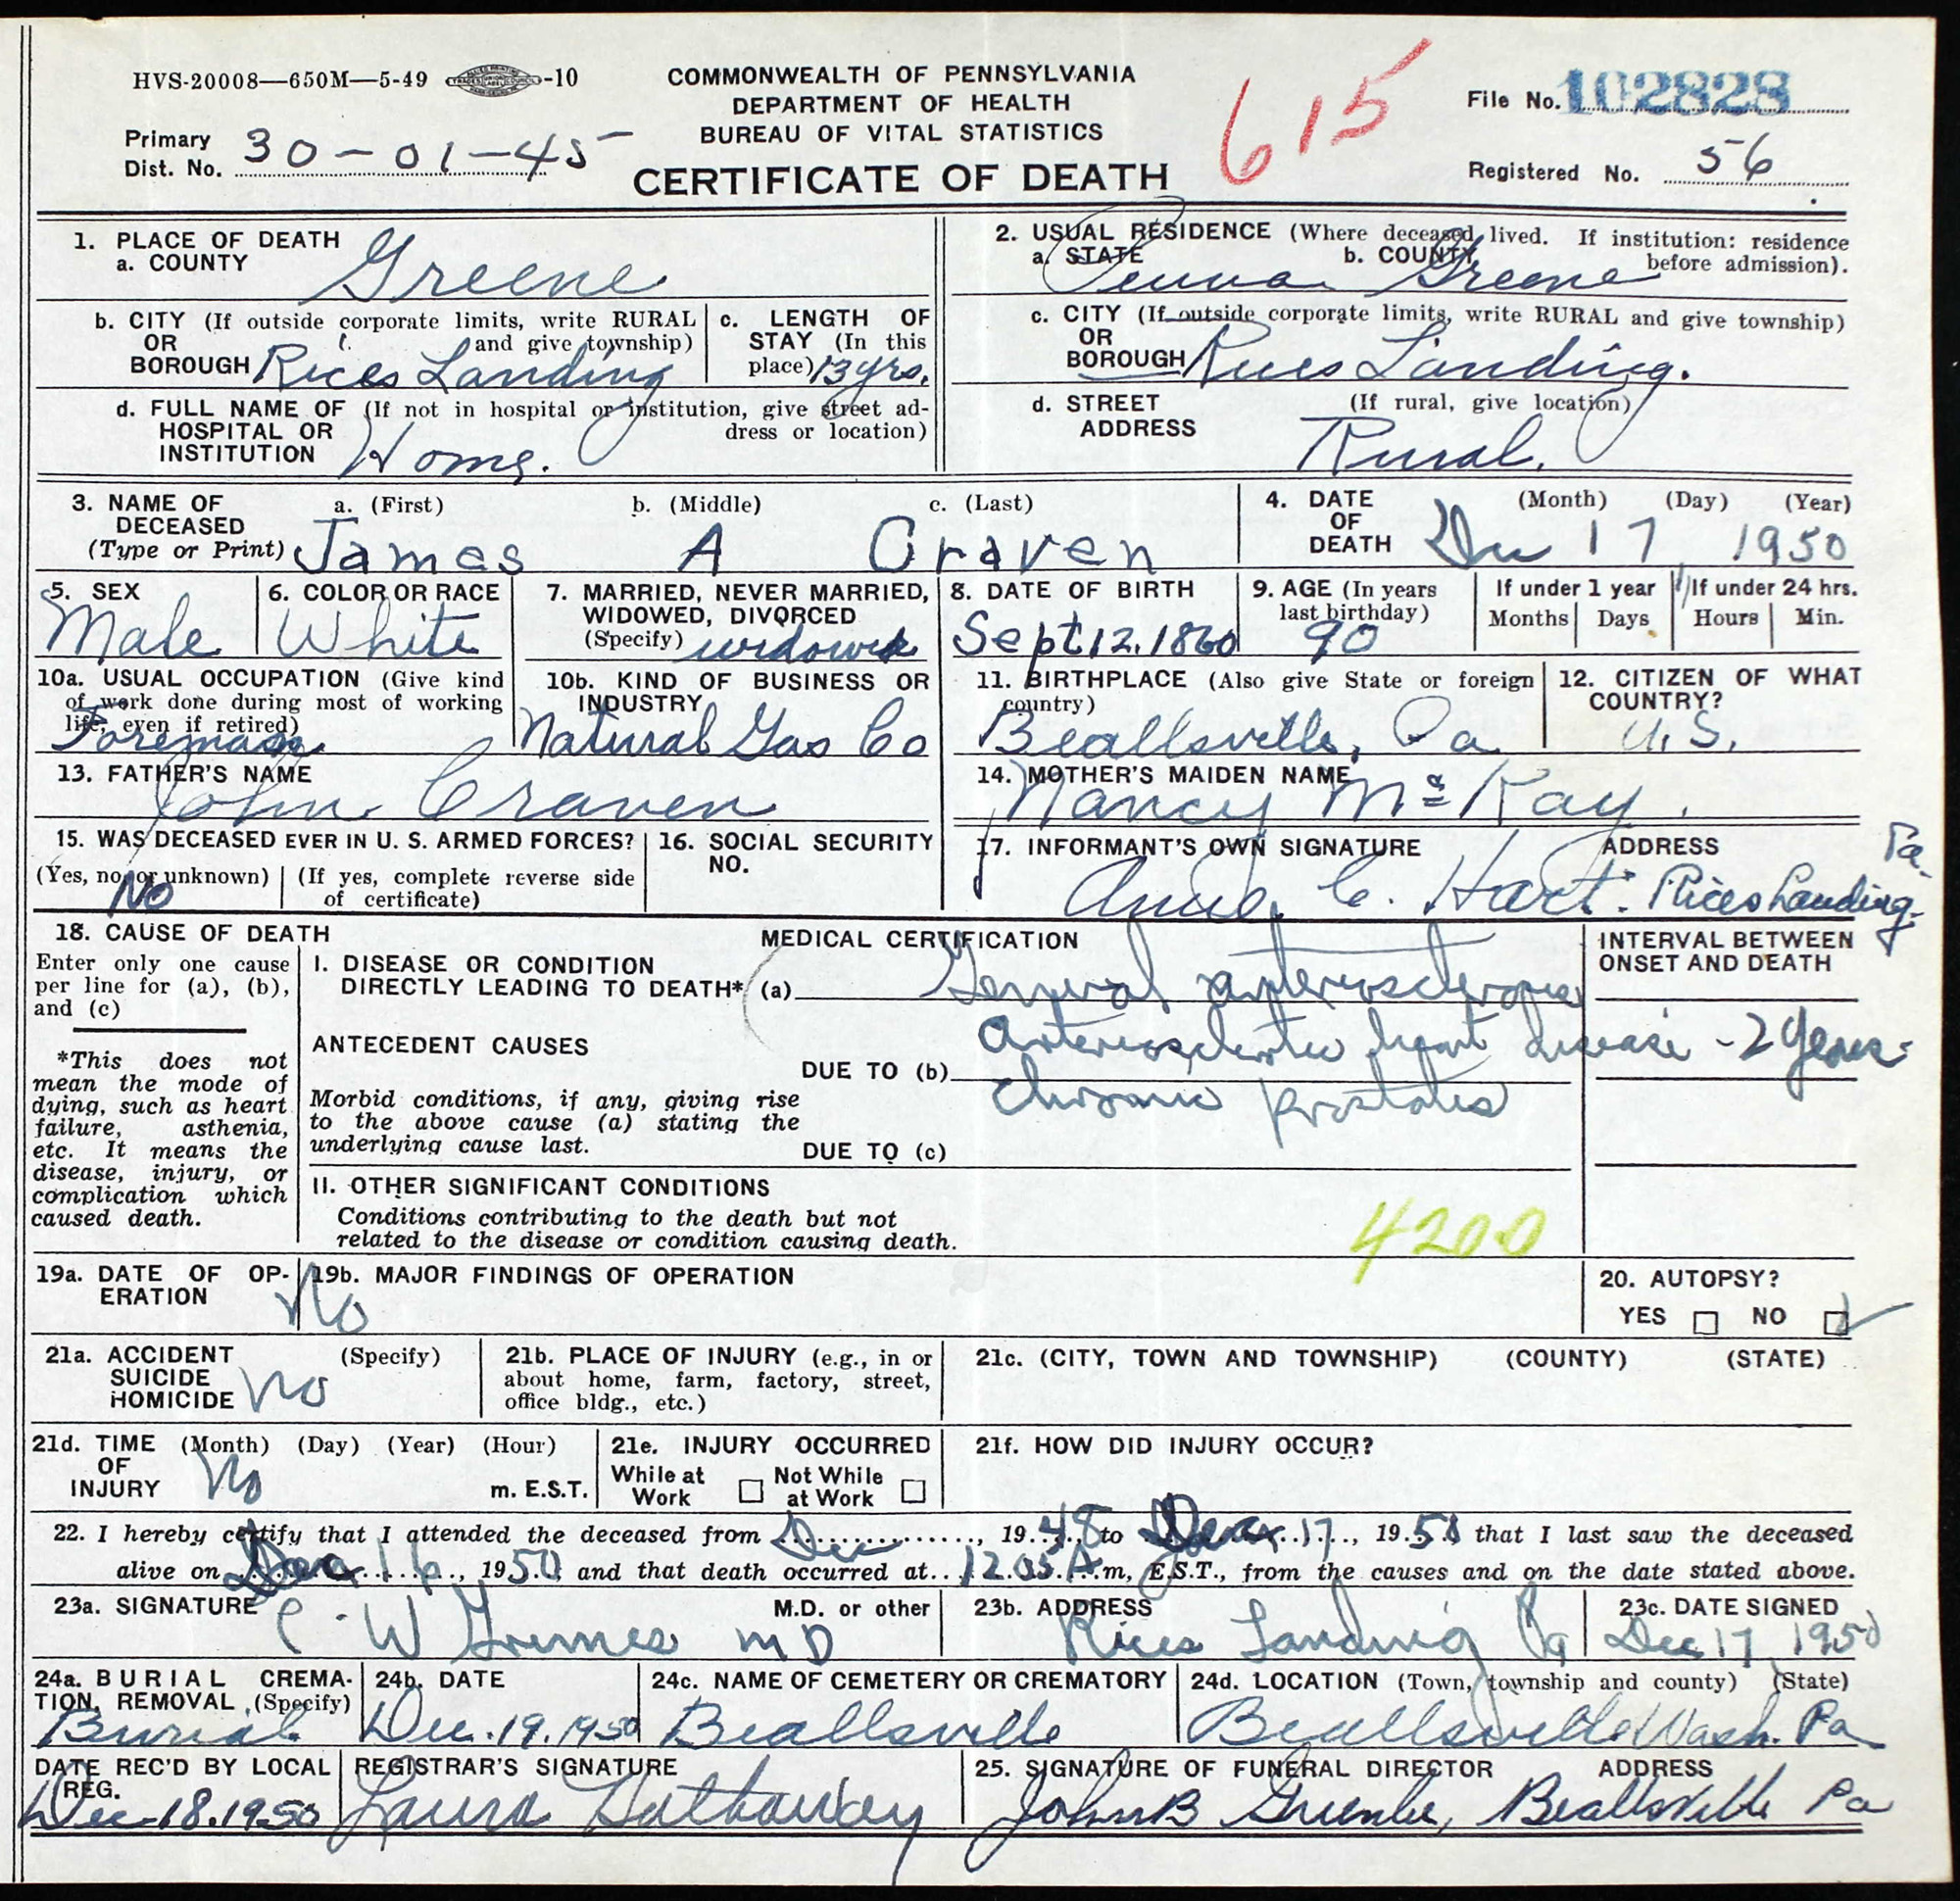 HVS-20008—650M—5-49 -10
COMMONWEALTH OF PENNSYLVANIA
DEPARTMENT OF HEALTH
BUREAU OF VITAL STATISTICS
CERTIFICATE OF DEATH
615
File No. 102828
Primary Dist. No. 30-01-45
Registered No. 56
1. PLACE OF DEATH
a. COUNTY Greene
2. USUAL RESIDENCE (Where deceased lived. If institution: residence before admission).
a. STATE Penna b. COUNTY Greene
b. CITY (If outside corporate limits, write RURAL and give township)
OR BOROUGH Rices Landing
c. LENGTH OF STAY (In this place) 13 yrs.
c. CITY (If outside corporate limits, write RURAL and give township)
OR BOROUGH Rices Landing.
d. FULL NAME OF HOSPITAL OR INSTITUTION (If not in hospital or institution, give street address or location)
Home.
d. STREET ADDRESS (If rural, give location)
Rural.
3. NAME OF DECEASED (Type or Print)
a. (First) b. (Middle) c. (Last)
James A Craven
4. DATE OF DEATH (Month) (Day) (Year)
Dec 17 1950
5. SEX
Male
6. COLOR OR RACE
White
7. MARRIED, NEVER MARRIED, WIDOWED, DIVORCED (Specify) widowed
8. DATE OF BIRTH
Sept 12, 1860
9. AGE (In years last birthday)
90
If under 1 year
Months Days
If under 24 hrs.
Hours Min.
10a. USUAL OCCUPATION (Give kind of work done during most of working life, even if retired)
Foreman
10b. KIND OF BUSINESS OR INDUSTRY
Natural Gas Co
11. BIRTHPLACE (Also give State or foreign country)
Beallsville, Pa
12. CITIZEN OF WHAT COUNTRY?
U.S.
13. FATHER'S NAME
John Craven
14. MOTHER'S MAIDEN NAME
Nancy Mc Kay.
15. WAS DECEASED EVER IN U. S. ARMED FORCES?
(Yes, no, or unknown) (If yes, complete reverse side of certificate)
No
16. SOCIAL SECURITY NO.
17. INFORMANT'S OWN SIGNATURE ADDRESS
C. Hart. Rices Landing, Pa.
18. CAUSE OF DEATH
Enter only one cause per line for (a), (b), and (c)
*This does not mean the mode of dying, such as heart failure, asthenia, etc. It means the disease, injury, or complication which caused death.
MEDICAL CERTIFICATION
INTERVAL BETWEEN ONSET AND DEATH
I. DISEASE OR CONDITION DIRECTLY LEADING TO DEATH* (a) General arteriosclerosis
ANTECEDENT CAUSES
Morbid conditions, if any, giving rise to the above cause (a) stating the underlying cause last.
DUE TO (b) arteriosclerotic heart disease - 2 years
DUE TO (c) chronic prostatis
II. OTHER SIGNIFICANT CONDITIONS
Conditions contributing to the death but not related to the disease or condition causing death.
4200
19a. DATE OF OPERATION
No
19b. MAJOR FINDINGS OF OPERATION
20. AUTOPSY?
YES NO
21a. ACCIDENT SUICIDE HOMICIDE (Specify)
No
21b. PLACE OF INJURY (e.g., in or about home, farm, factory, street, office bldg., etc.)
21c. (CITY, TOWN AND TOWNSHIP) (COUNTY) (STATE)
21d. TIME OF INJURY (Month) (Day) (Year) (Hour) m. E.S.T.
No
21e. INJURY OCCURRED
While at Work Not While at Work
21f. HOW DID INJURY OCCUR?
22. I hereby certify that I attended the deceased from Dec, 1948, to Dec 17, 1950 that I last saw the deceased
alive on Dec 16, 1950 and that death occurred at 12.05 A.m, E.S.T., from the causes and on the date stated above.
23a. SIGNATURE M.D. or other
C. W Grimes MD
23b. ADDRESS
Rices Landing Pa
23c. DATE SIGNED
Dec 17 1950
24a. BURIAL CREMATION, REMOVAL (Specify)
Burial
24b. DATE
Dec. 19. 1950
24c. NAME OF CEMETERY OR CREMATORY
Beallsville
24d. LOCATION (Town, township and county) (State)
Beallsville Wash. Pa
DATE REC'D BY LOCAL REG.
Dec-18.1950
REGISTRAR'S SIGNATURE
Laura Hathaway
25. SIGNATURE OF FUNERAL DIRECTOR ADDRESS
John B Greenlee, Beallsville Pa